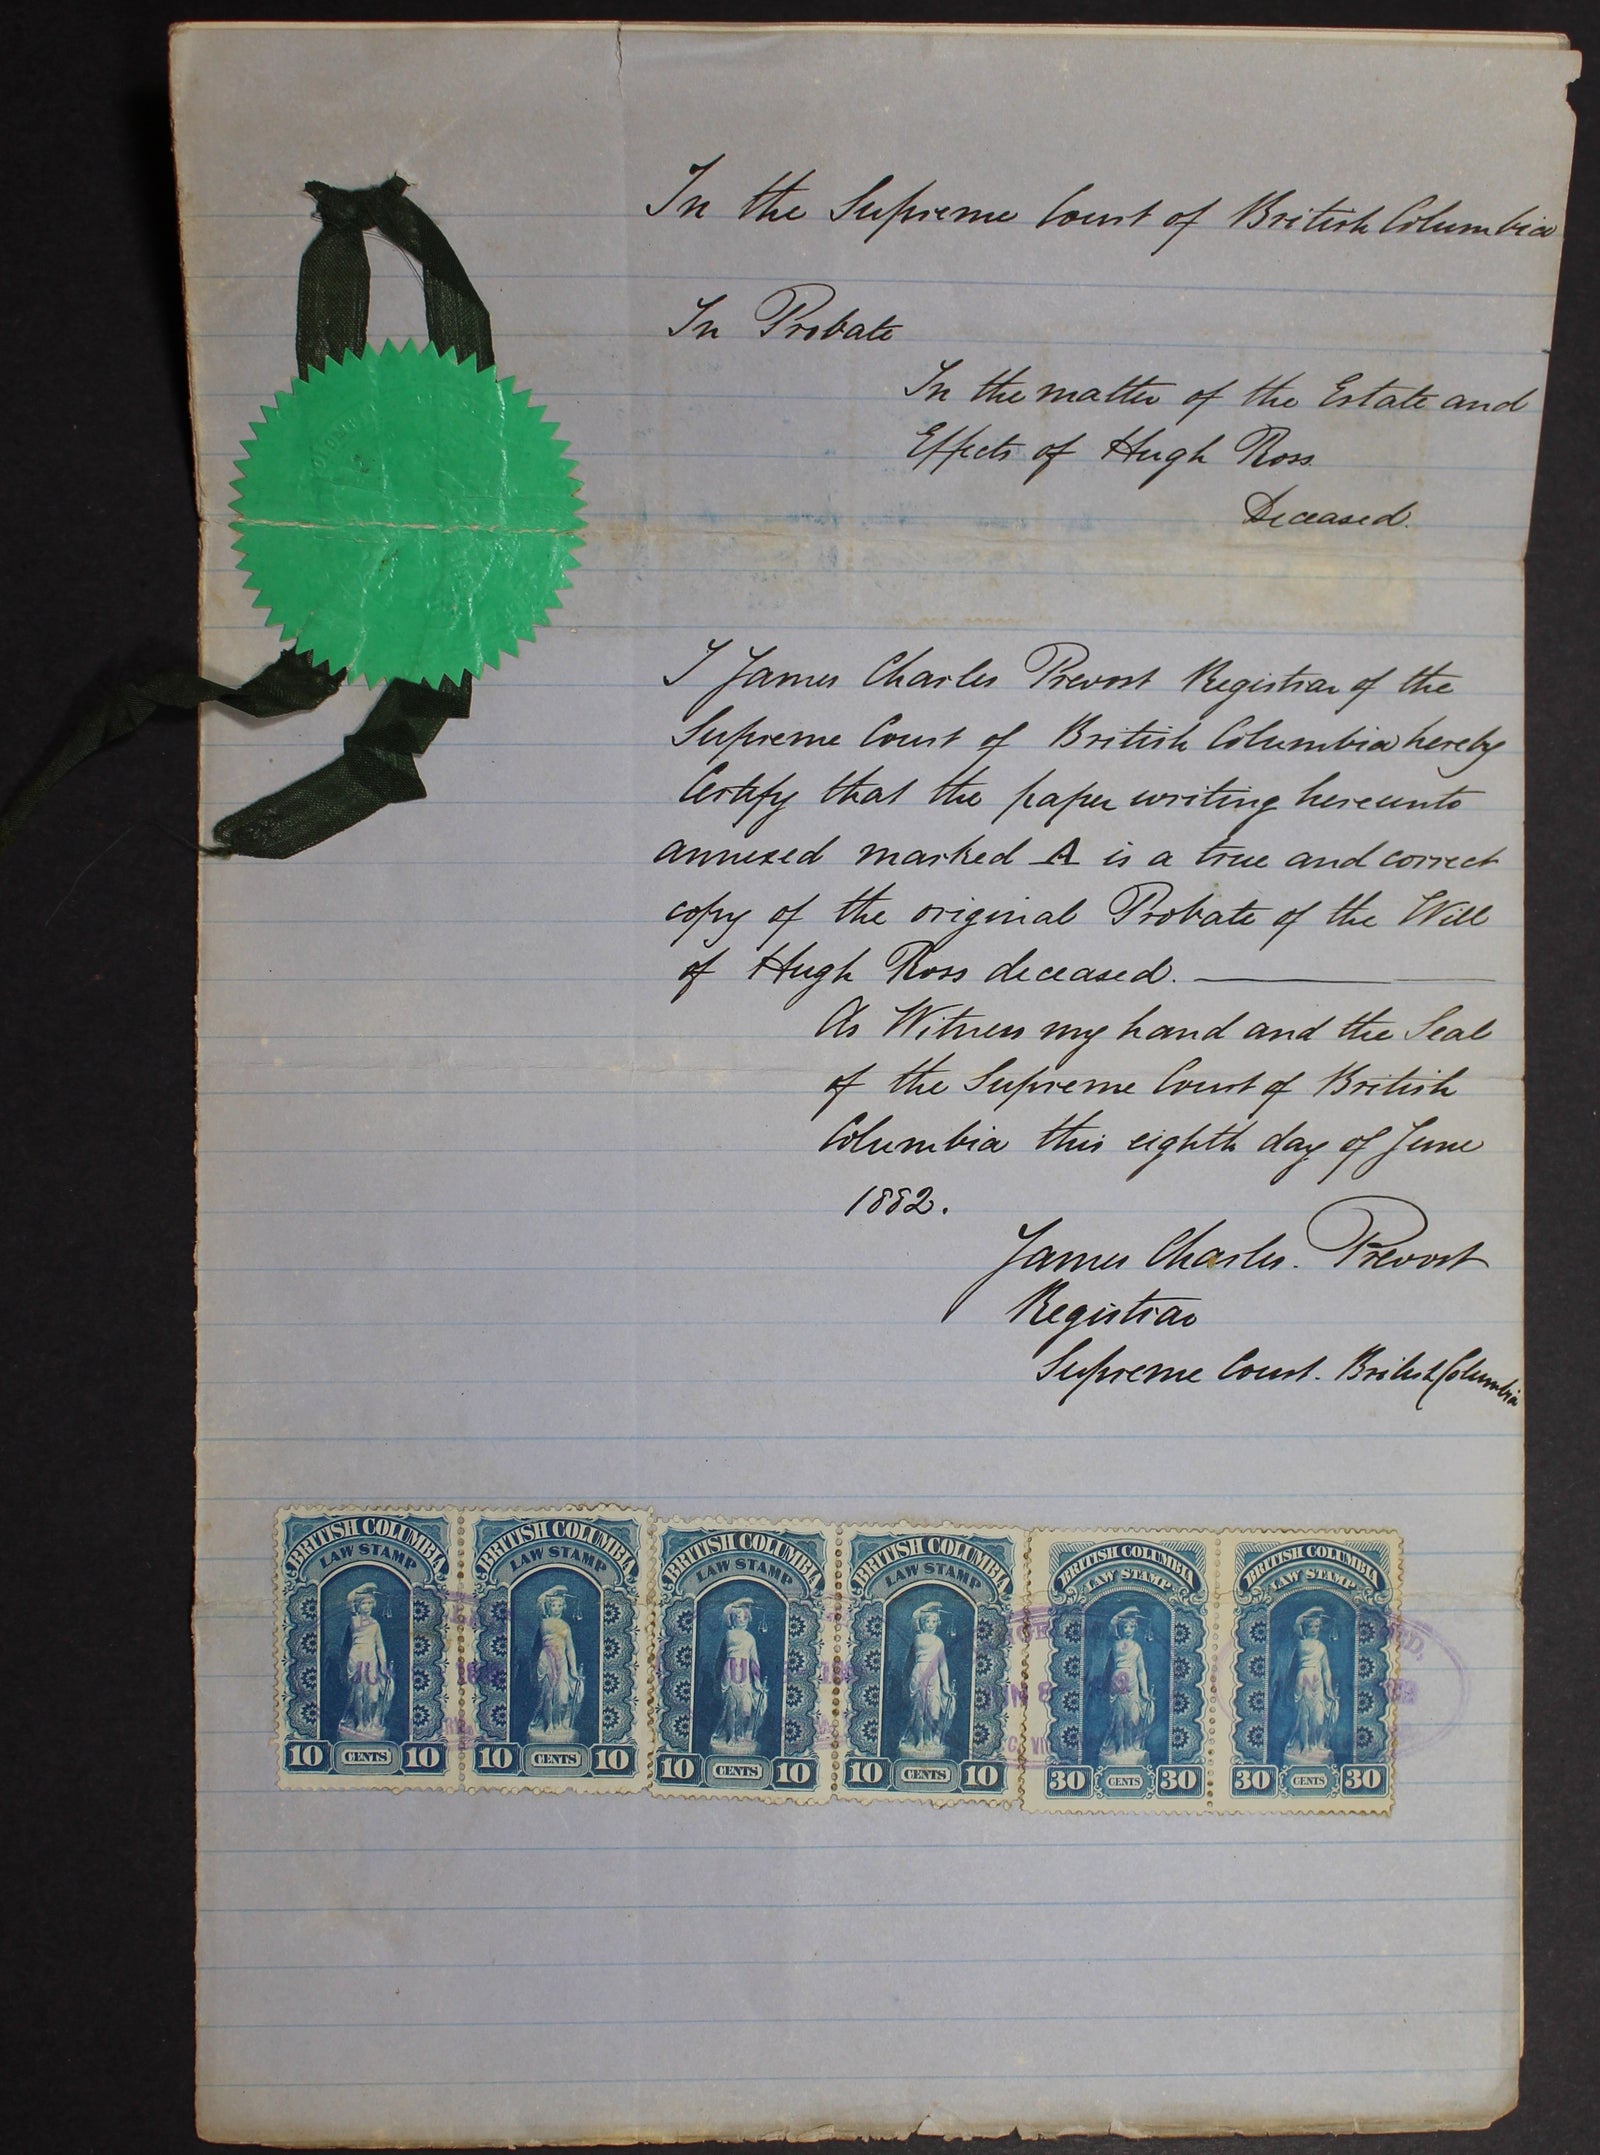 In the Supreme Court of British Columbia
In Probate
In the matter of the Estate and
Effects of Hugh Ross
Deceased.
I James Charles Prevost Registrar of the
Supreme Court of British Columbia hereby
Certify that the paper writing hereunto
annexed marked A is a true and correct
copy of the original Probate of the Will
of Hugh Ross deceased.
As Witness my hand and the Seal
of the Supreme Court of British
Columbia this eighth day of June
1882.
James Charles. Prevost
Registrar
Supreme Court. British Columbia
BRITISH COLUMBIA
LAW STAMP
10 CENTS 10
BRITISH COLUMBIA
LAW STAMP
10 CENTS 10
BRITISH COLUMBIA
LAW STAMP
10 CENTS 10
BRITISH COLUMBIA
LAW STAMP
10 CENTS 10
BRITISH COLUMBIA
LAW STAMP
30 CENTS 30
BRITISH COLUMBIA
LAW STAMP
30 CENTS 30